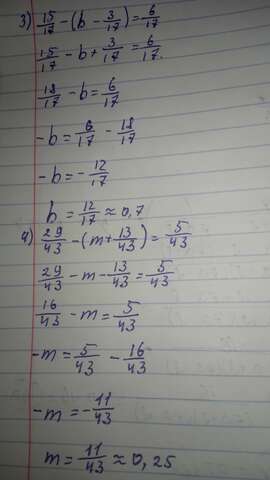 3) 15/17 - (b - 3/17) = 6/17
15/17 - b + 3/17 = 6/17.
18/17 - b = 6/17
-b = 6/17 - 18/17
-b = - 12/17
b = 12/17 ≈ 0,7
4) 29/43 - (m + 13/43) = 5/43
29/43 - m - 13/43 = 5/43
16/43 - m = 5/43
-m = 5/43 - 16/43
-m = - 11/43
m = 11/43 ≈ 0,25